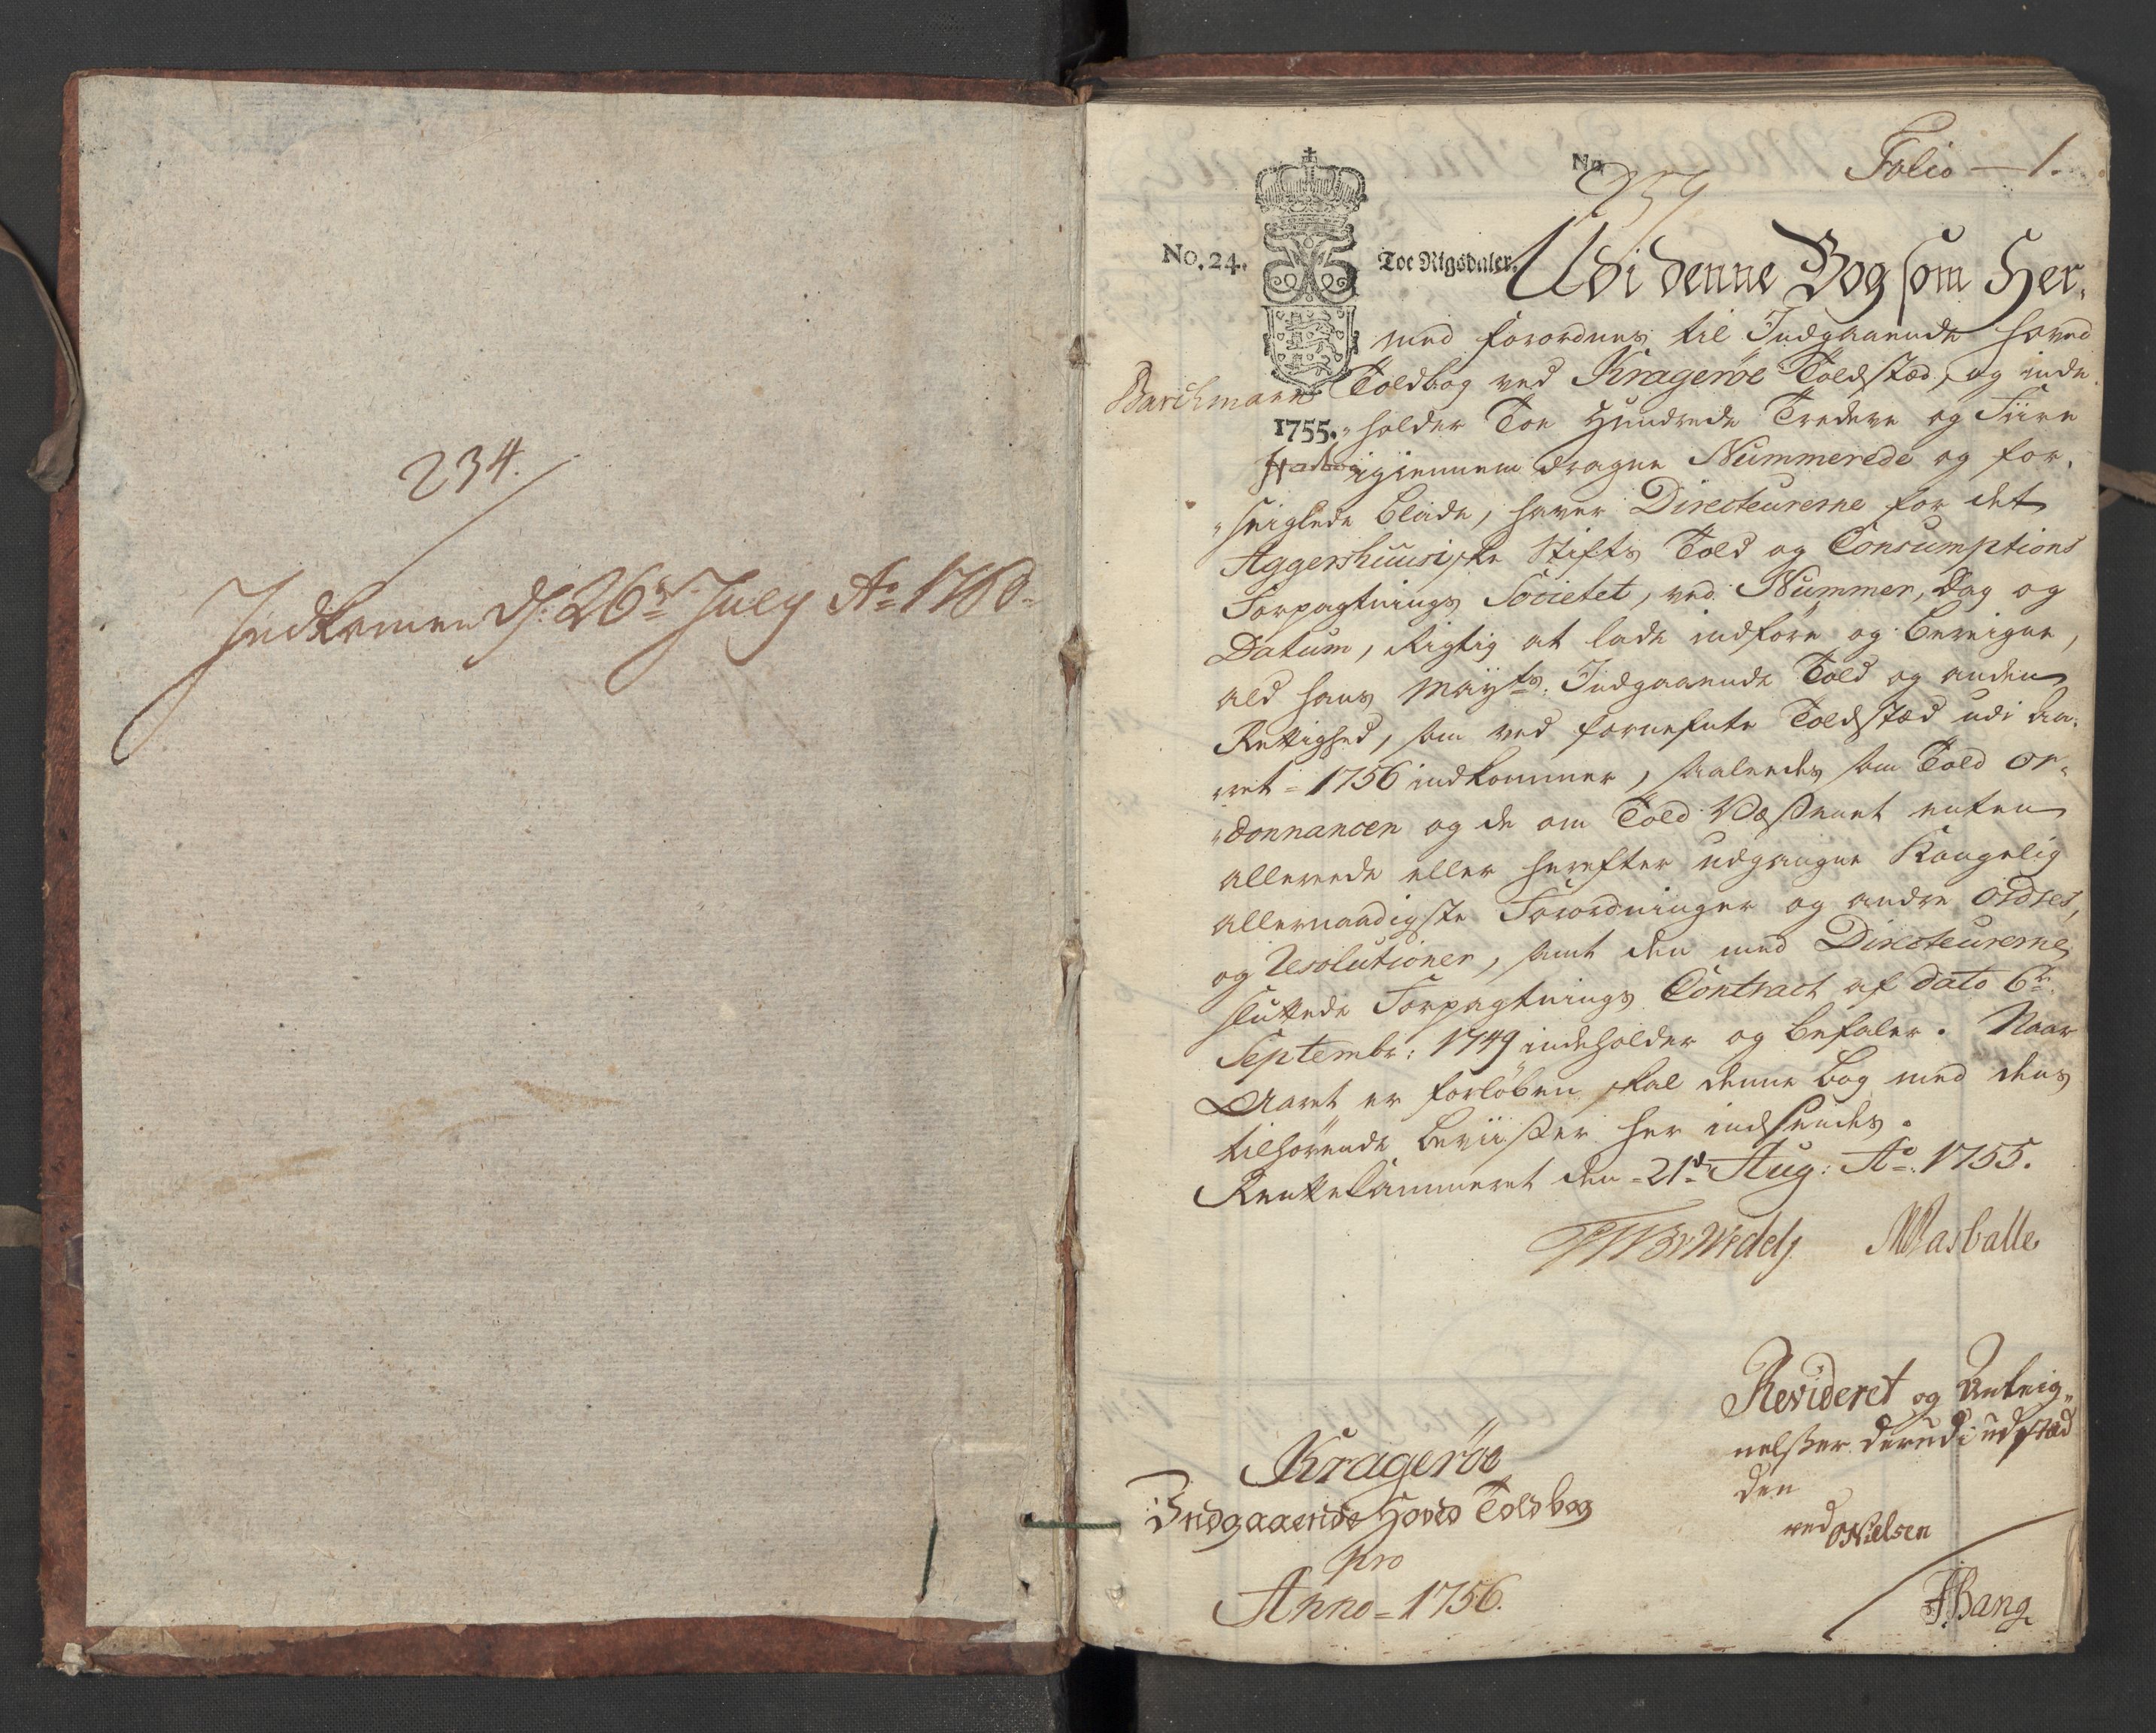 234.
Indkommen d: 26de July Ao 1760.
No. 259
Folio — 1.
No. 24.
Toe Rigsdaler.
Udi denne Bog som Her-
med forordnes til Indgaaende Hoved
Barchmann
Toldbog ved Kragerøe Toldsted, og inde-
1755.
holder Toe Hundrede Tredeve og Fiire
igiennem dragne Nummerede og for-
seiglede Blade, haver Directeurerne for det
Aggershuusiske Stifts Told og Consumptions
Forpagtnings Societet, ved Nummer, Dag og
Datum, Rigtig at lade indføre og beteigne,
ald Hans Mayts: Indgaaende Told og anden
Rettighed, som ved fornefnte Toldsted udi Aa-
ret = 1756 indkommer, saaleedes som Told Or-
donnancen og de om Told Væsenet enten
allereede eller herefter udgangne Kongelig
allernaadigste Forordninger og andre Ordres,
og Resolutioner, samt den med Directeurerne
sluttede Forpagtnings Contract af dato 6te
Septembr: 1749 indeholder og befaler. Naar
Aaret er forløben skal denne bog med dens
tilhørende beviiser her indsendes.
RentteCammeret den = 21de Aug: Ao 1755.
Wasballe
Kragerøe
Indgaaende Hoved Toldbog
pro
Anno = 1756.
Revideret og Anteig-
nelser derudi udsted
den
ved ONielsen
Bang